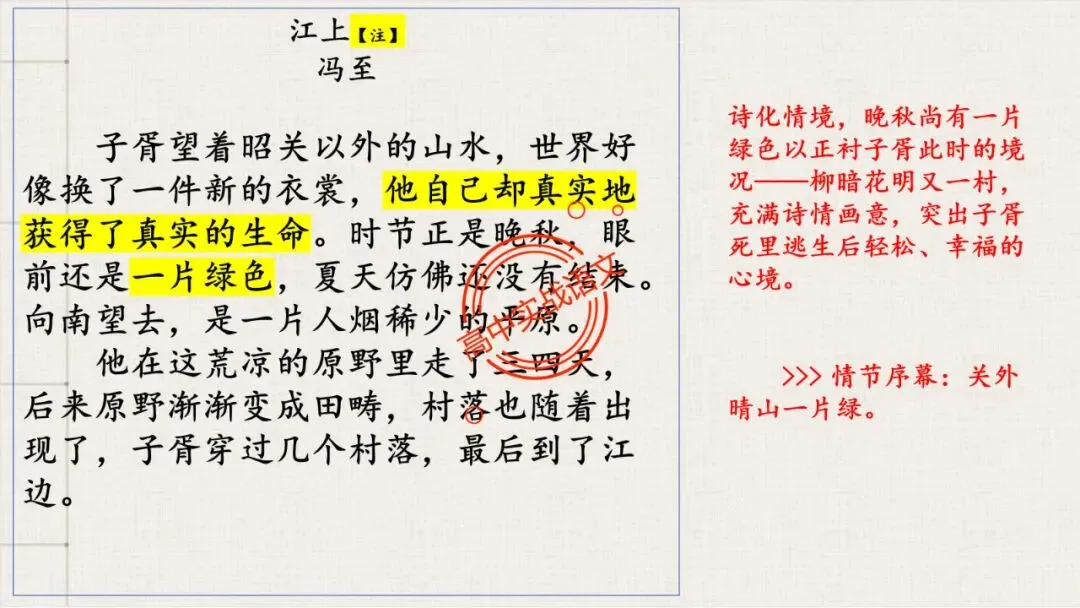 江上【注】
冯至
子胥望着昭关以外的山水，世界好
像换了一件新的衣裳，他自己却真实地
获得了真实的生命。时节正是晚秋，眼
前还是一片绿色，夏天仿佛还没有结束。
向南望去，是一片人烟稀少的平原。
他在这荒凉的原野里走了三四天，
后来原野渐渐变成田畴，村落也随着出
现了，子胥穿过几个村落，最后到了江
边。
高中实战语文
诗化情境，晚秋尚有一片
绿色以正衬子胥此时的境
况——柳暗花明又一村，
充满诗情画意，突出子胥
死里逃生后轻松、幸福的
心境。
>>> 情节序幕：关外
晴山一片绿。